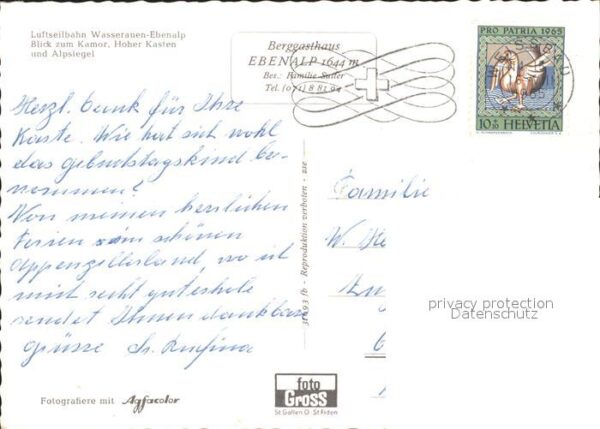 Luftseilbahn Wasserauen-Ebenalp
Blick zum Kamor, Hoher Kasten
und Alpsiegel
Berggasthaus
EBENALP 1644 m
Bes.: Familie Sutter
Tel. (071) 8 81 94
PRO PATRIA 1965
10+10 HELVETIA
Herzl. dank für Ihre
Karte. Wie hat sich wohl
das geburtstagskind be-
nommen?
Von meinen herrlichen
Ferien im schönen
Appenzellerland wo ich
mich recht guterhole
sendet Ihnen dankbar
grüsse Sr. Rufina
Familie
W. He
privacy protection
Datenschutz
Reproduktion verboten
foto
Gross
St. Gallen O St. Fiden
Fotografiere mit Agfacolor